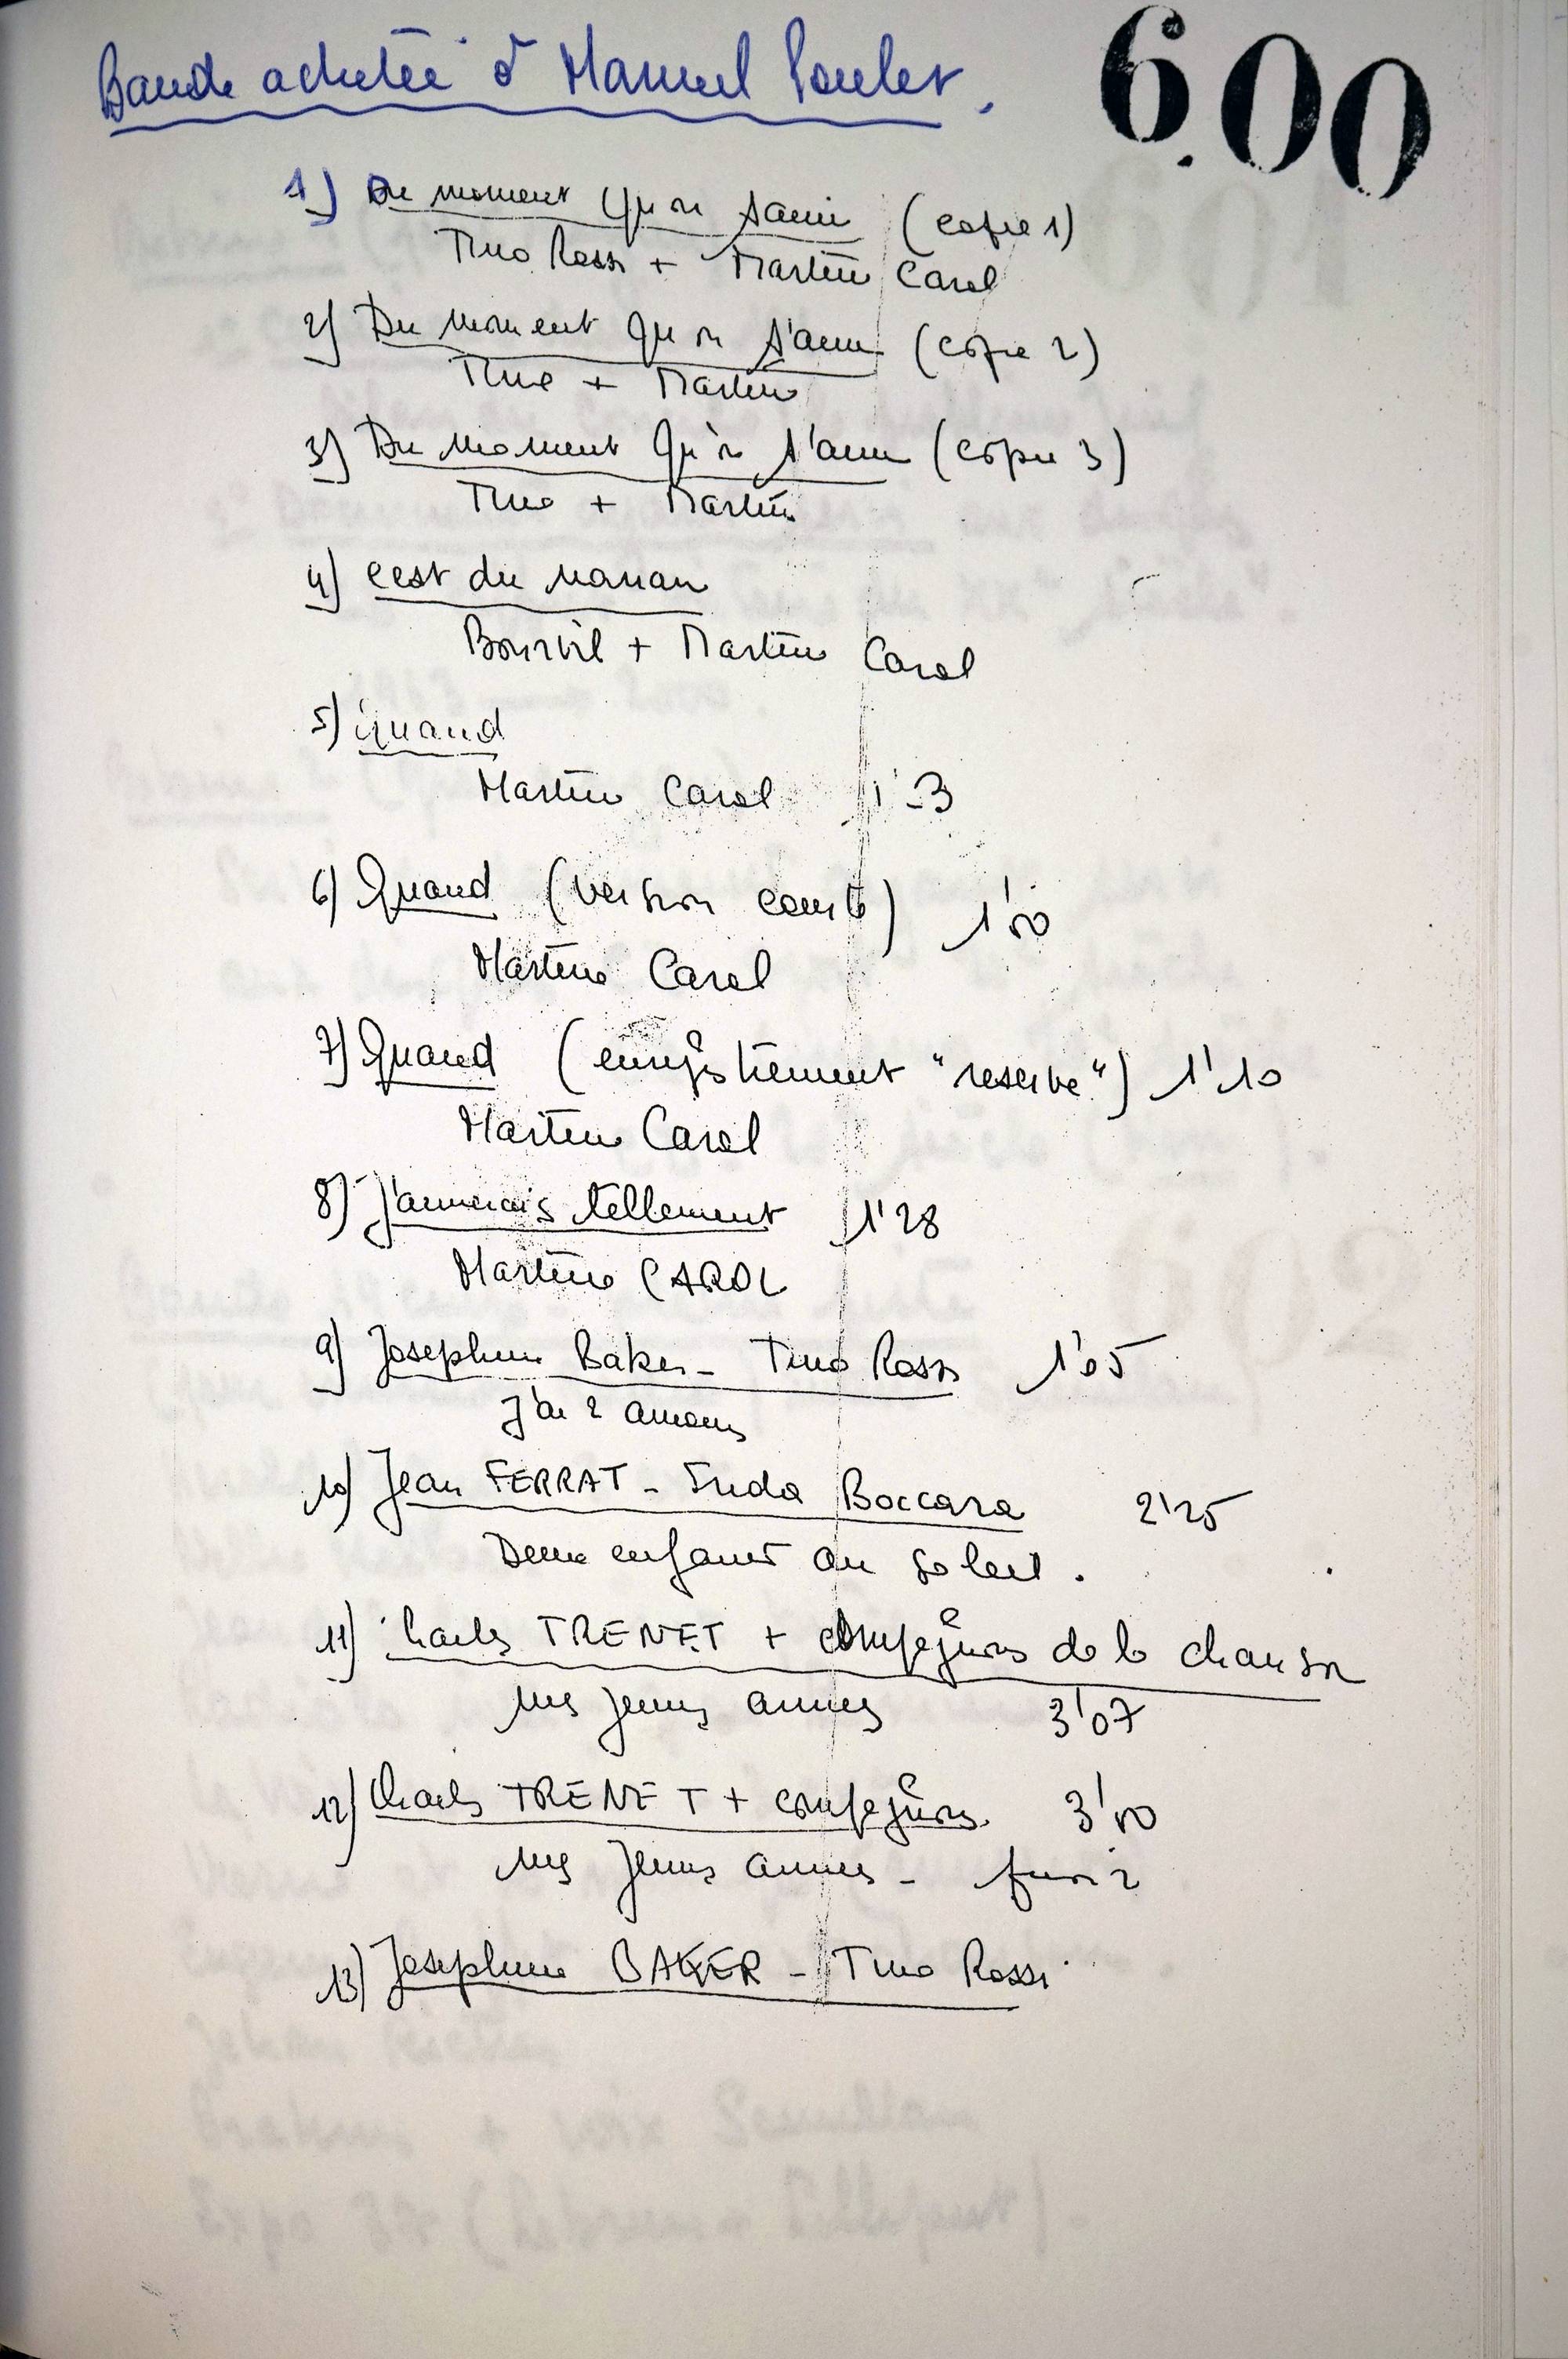 Bande achetée à Manuel Poulet.
600
1) Du moment qu'on s'aime (copie 1)
Tino Rossi + Martine Carol
2) Du moment qu'on s'aime (copie 2)
Tino + Martine
3) Du moment qu'on s'aime (copie 3)
Tino + Martine
4) C'est du nanan
Bourvil + Martine Carol
5) Quand
Martine Carol 1'
6) Quand (version courte) 1'00
Martine Carol
7) Quand (enregistrement "reserve") 1'10
Martine Carol
8) J'aimerais tellement 1'28
Martine CAROL
9) Josephine Baker - Tino Rossi 1'05
J'ai 2 amours
10) Jean FERRAT - Frida Boccara 2'25
Deux enfants au soleil.
11) Charles TRENET + compagnons de la chanson
mes jeunes années 3'07
12) Charles TRENET + compagnons 3'00
mes jeunes années -
13) Josephine BAKER - Tino Rossi